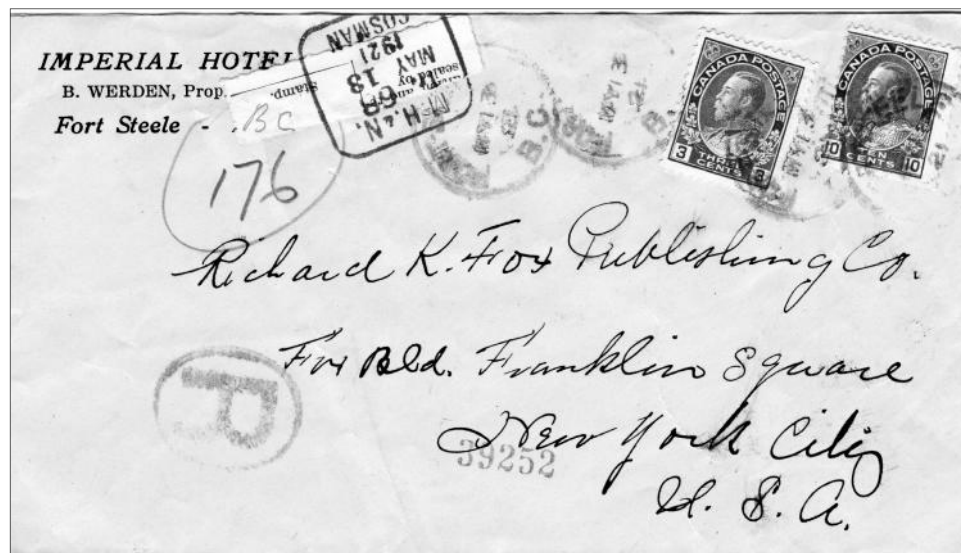 IMPERIAL HOTEL
B. WERDEN, Prop.
Fort Steele - BC
176
Stamp.
seal by
H. & N.
68
MAY 13
1921
COSMAN
B.C.
CANADA POSTAGE
3 THREE 3
CENTS
CANADA POSTAGE
10 TEN 10
CENTS
Richard K. Fox Publishing Co.
Fox Bld. Franklin Square
New York City
U. S. A.
R
39252